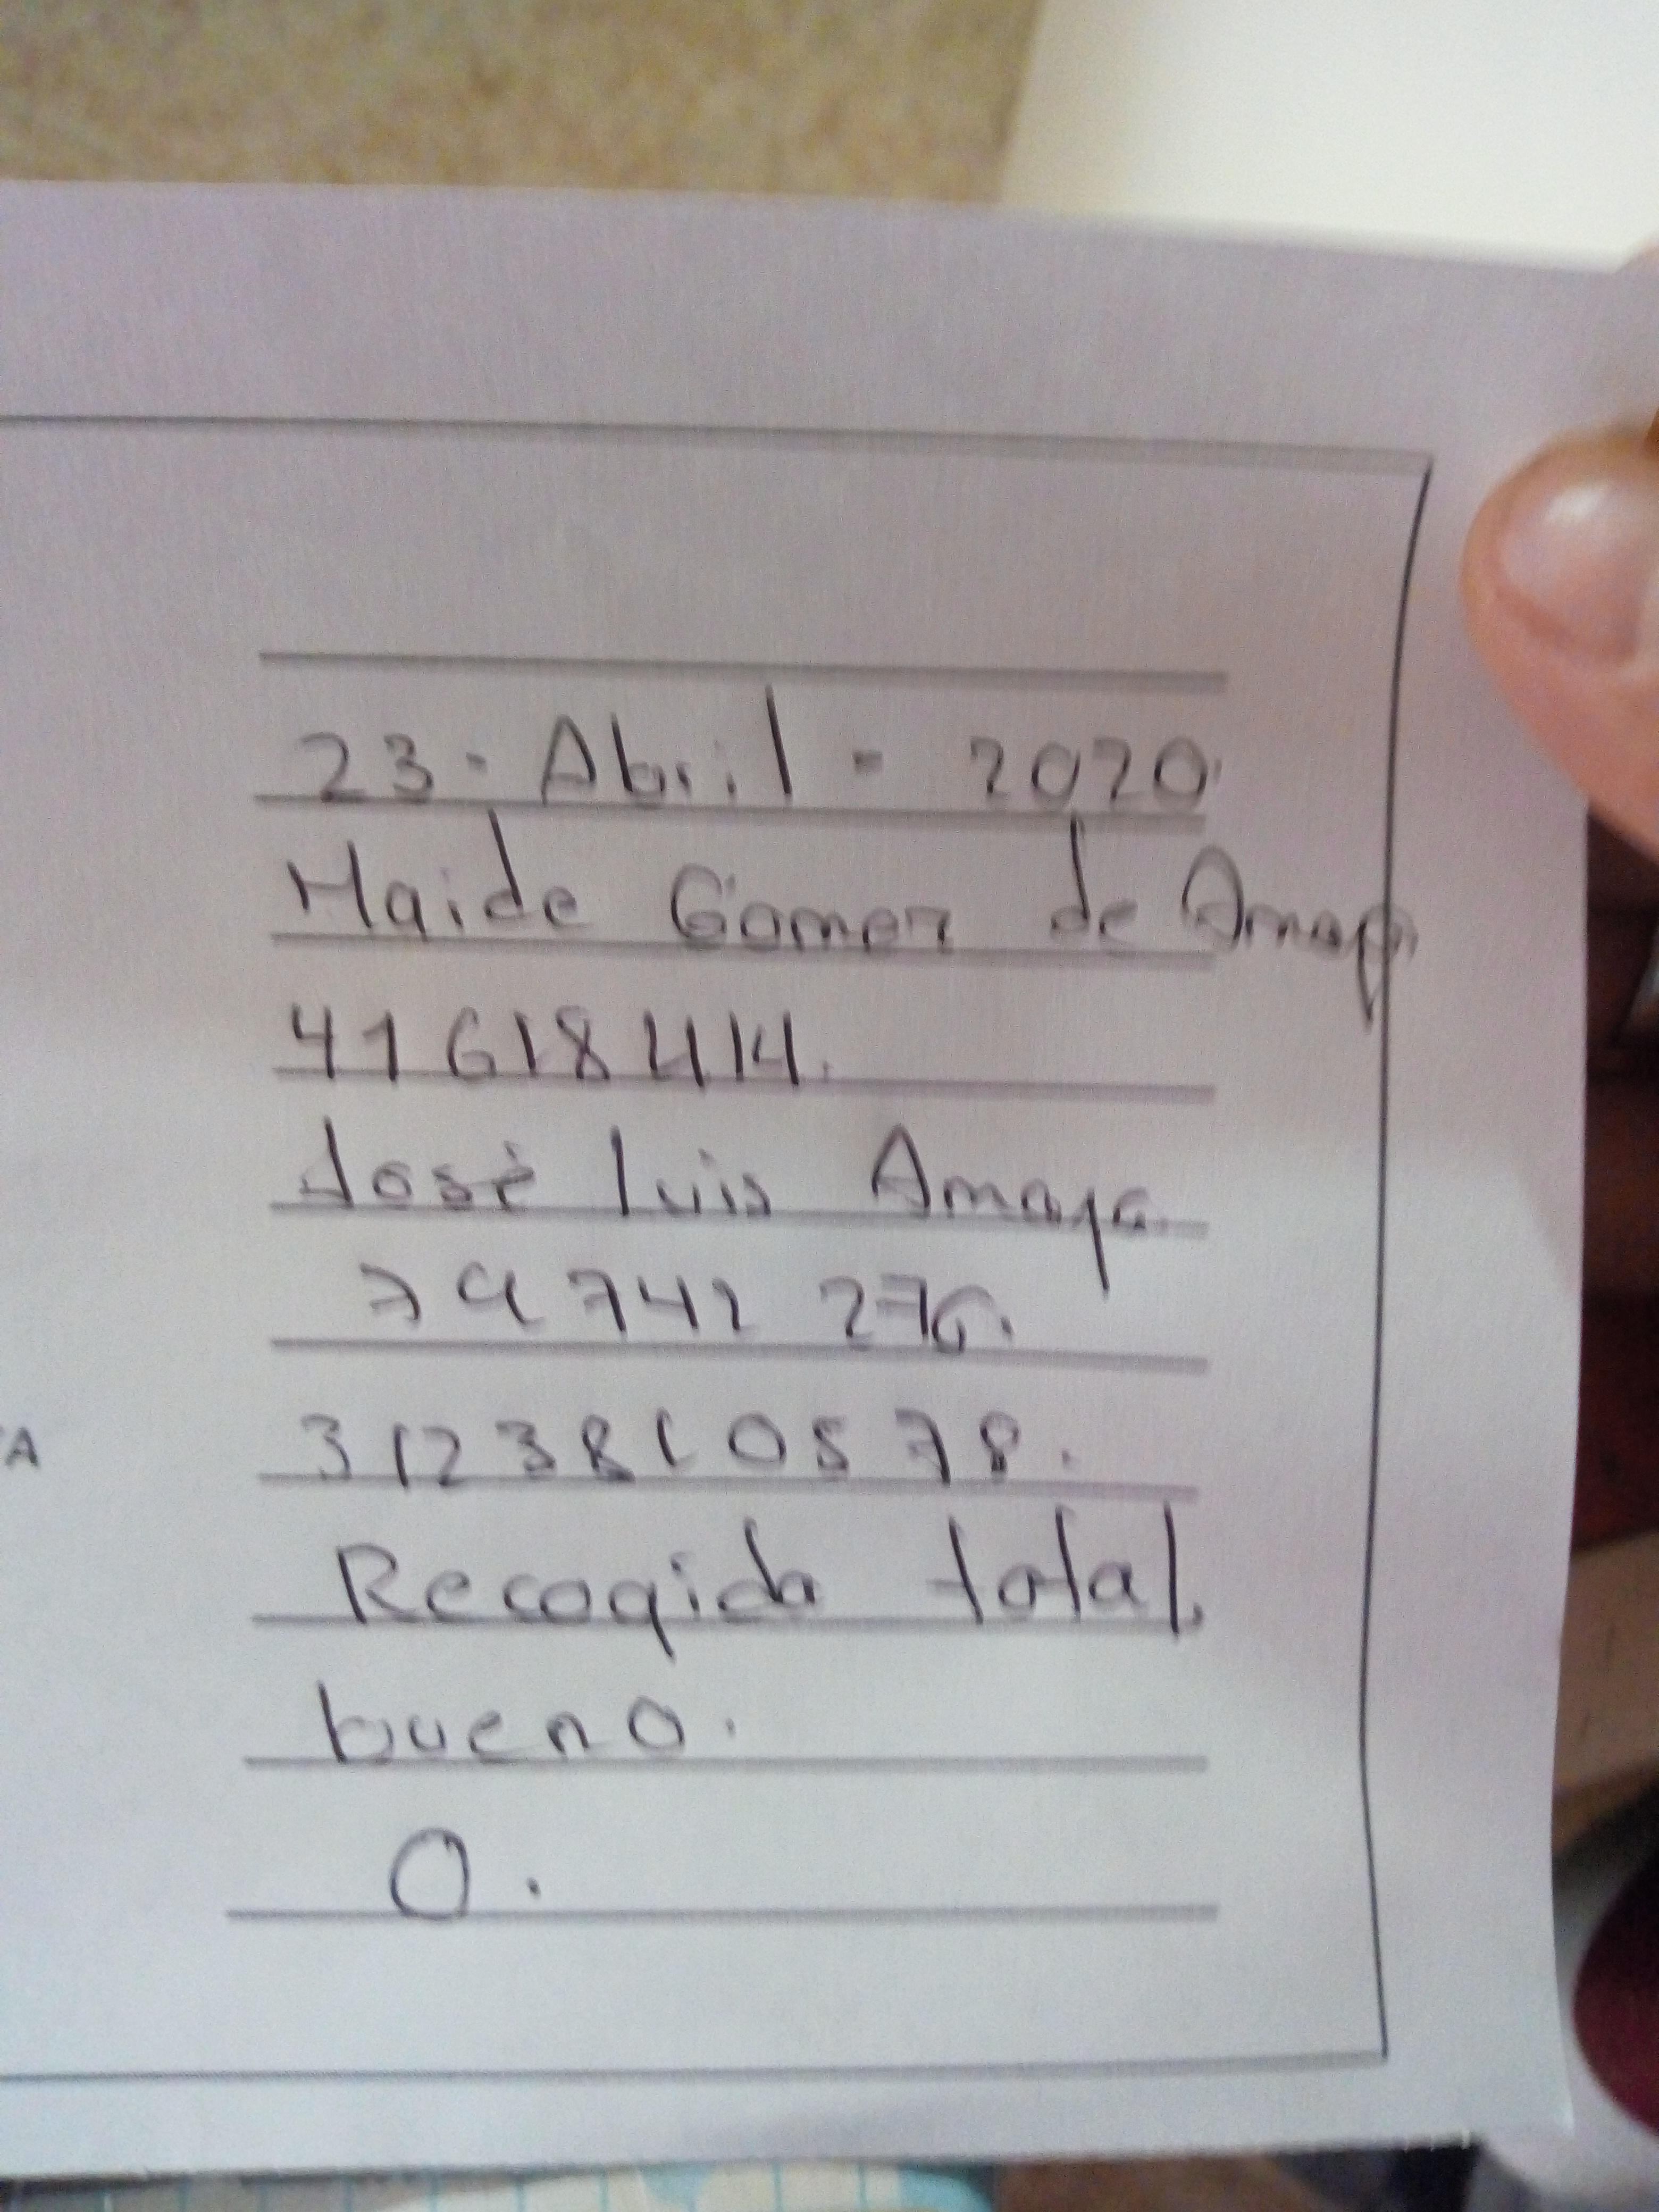 23 - Abril - 2020.
Haide Gomez de Amaya
41618414.
José luis Amaya.
79742 276.
TA 3123810578.
Recogida total.
bueno.
0.